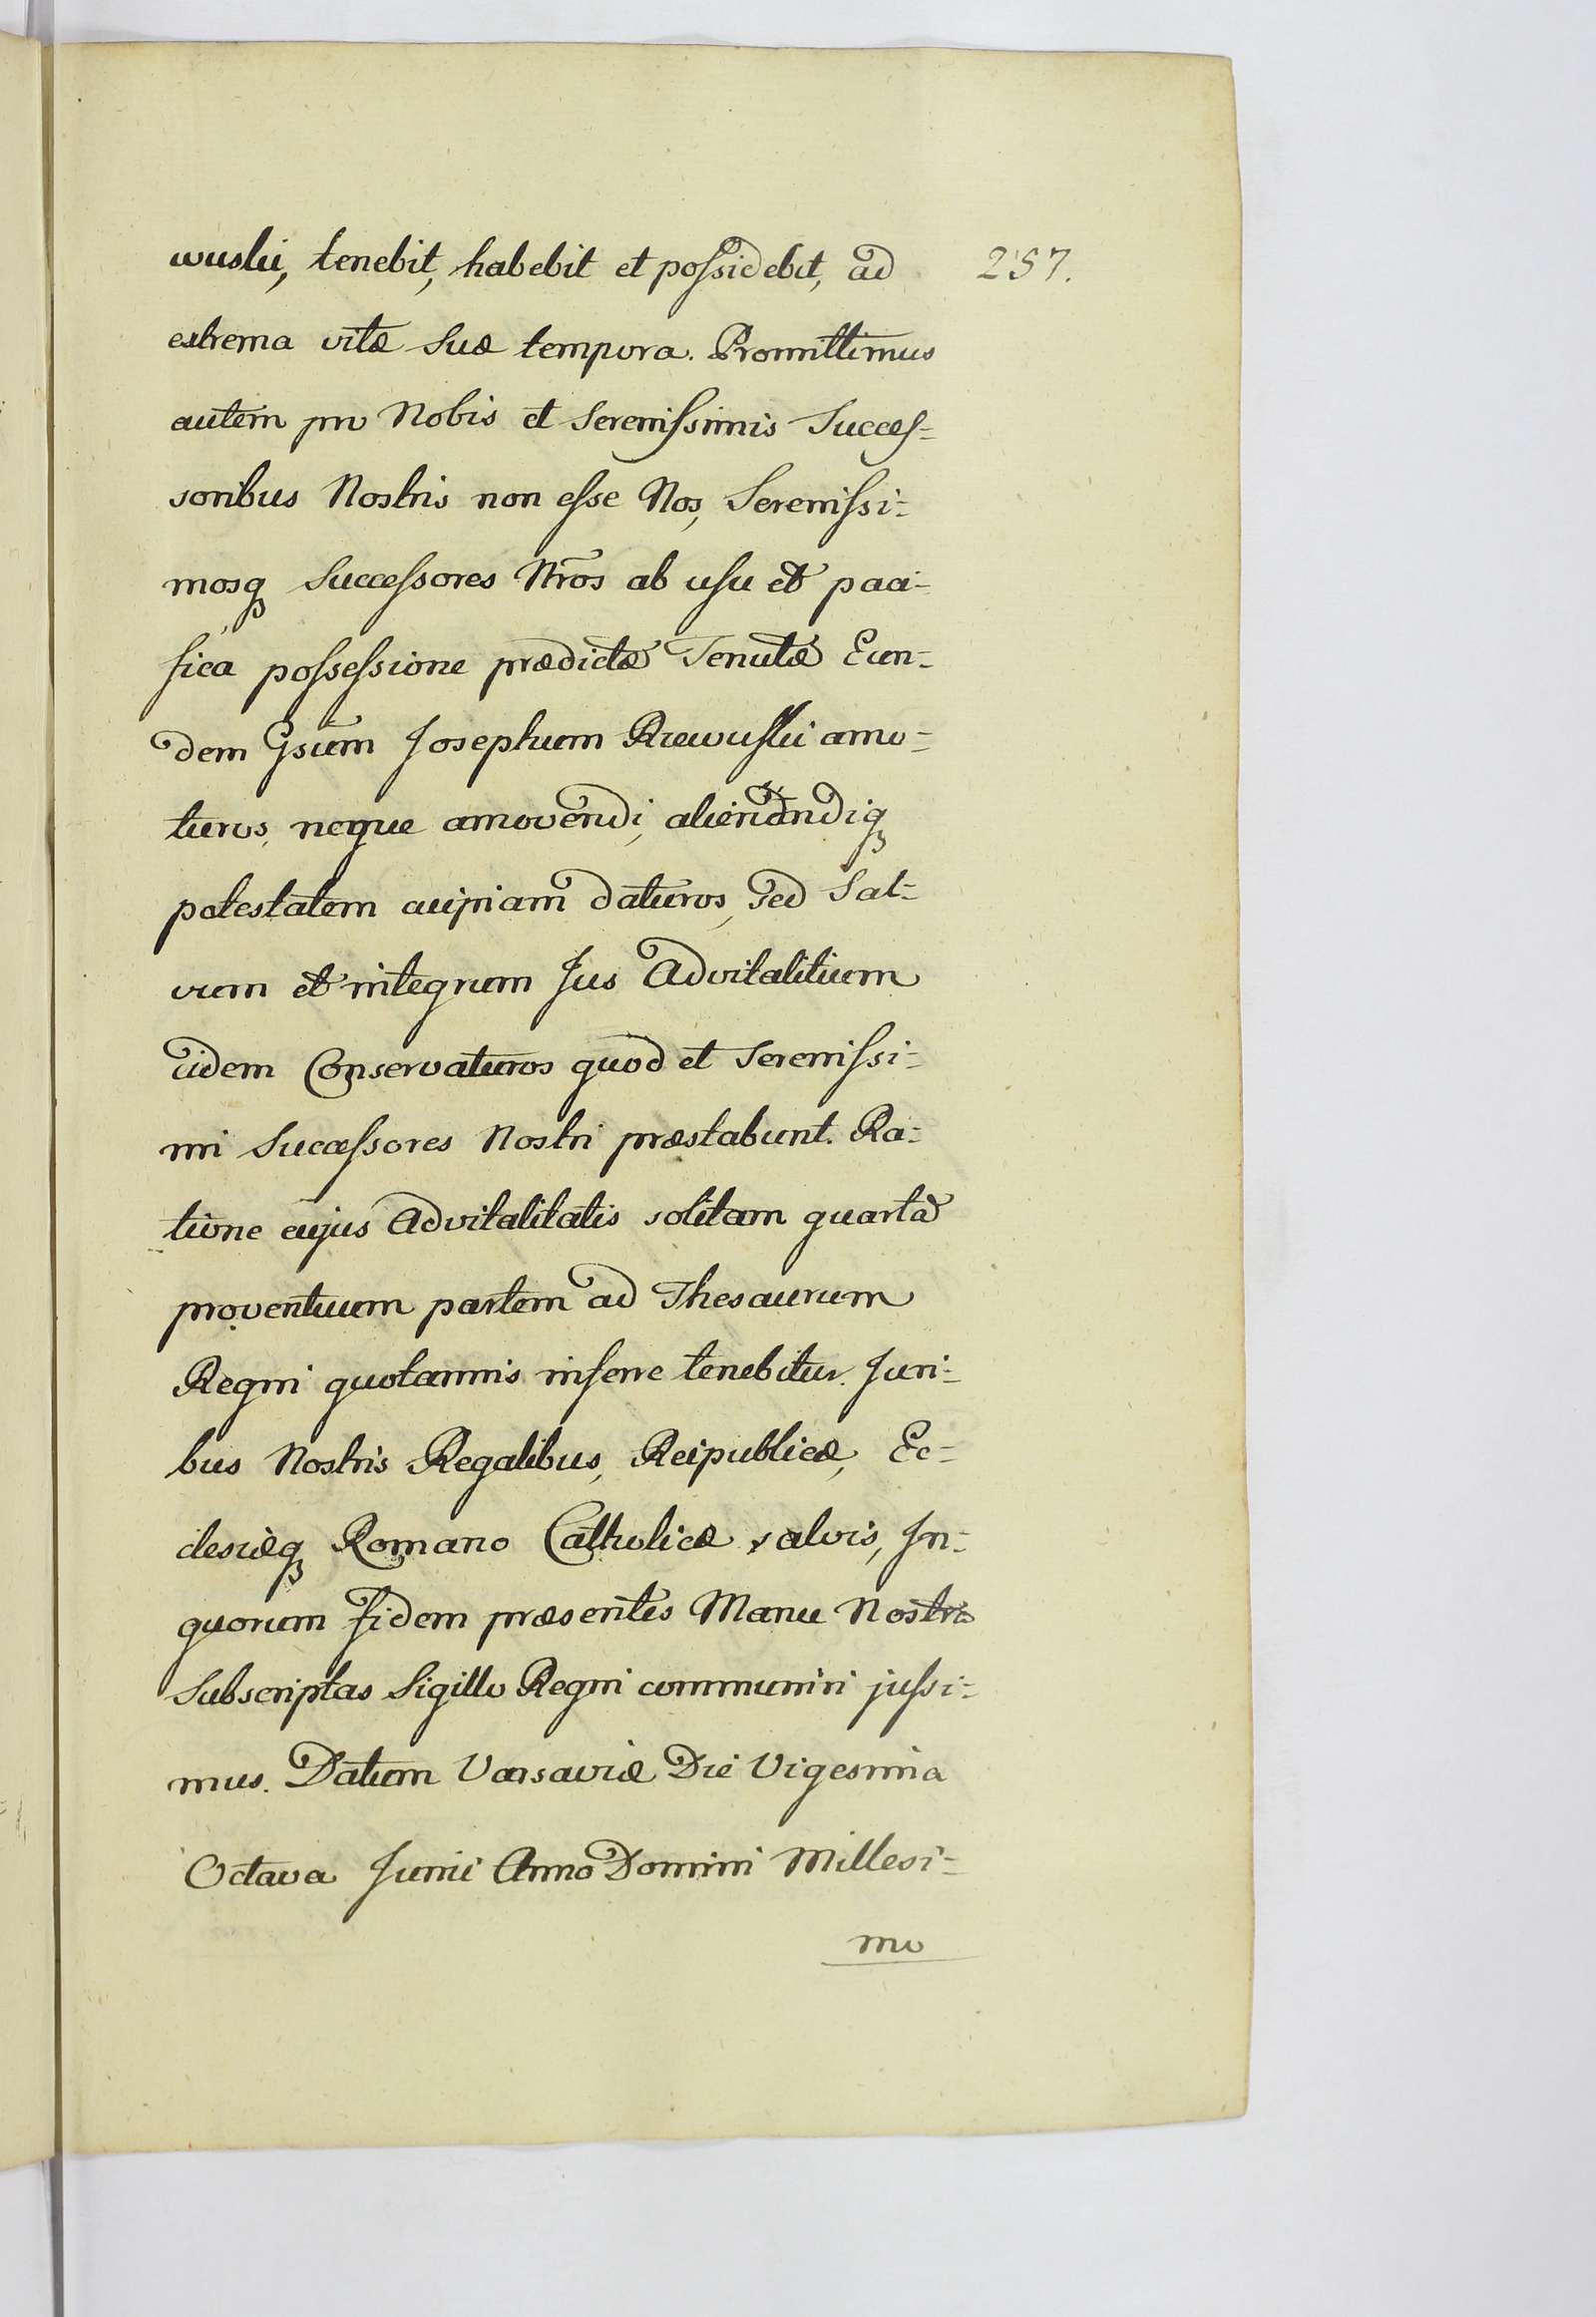 wuskii, tenebit, habebit et possidebit, ad
257.
extrema vitæ suæ tempora. Promittimus
autem pro Nobis et Serenissimis Succes=
soribus Nostris non esse Nos, Serenissi=
mosq Successores Nrōs ab usu et paci=
fica possessione prædictæ Tenutæ Eun=
dem Gsum Josephum Rzewuskii amo=
turos, neque amovendi, alienandiq
potestatem cuipiam daturos, sed Sal=
vum et integrum Jus Advitalitium
eidem Conservaturos quod et Serenissi=
mi Successores Nostri præstabunt. Ra=
tione cujus Advitalitatis solitam quartā
proventuum partem ad Thesaurum
Regni quotannis inferre tenebitur. Juri=
bus Nostris Regalibus, Reipublicæ, Ec=
clesiæq Romano Catholicæ salvis, In=
quorum fidem præsentes Manu Nostra
Subscriptas Sigillo Regni communiri jussi=
mus. Datum Varsaviæ Die Vigesima
Octava Junii Anno Domini Millesi=
mo